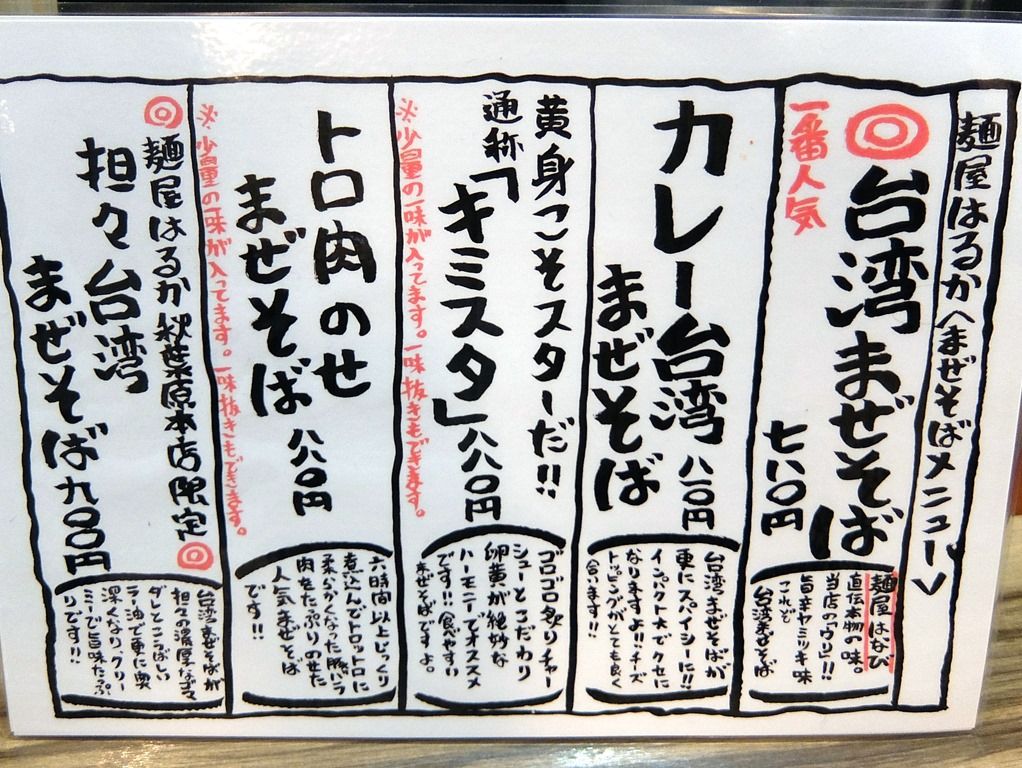 麺屋はるか〈まぜそばメニュー〉
◎台湾まぜそば
一番人気
七八〇円
麺屋はなび
直伝本物の味。
当店の「ウリ」!!
旨辛ヤミツキ味
これぞ
台湾まぜそば
カレー台湾
まぜそば
八八〇円
台湾まぜそばが
更にスパイシーに!!
インパクト大でクセに
なりますよ!!チーズ
トッピングがとても良く
合います!!
黄身こそスターだ!!
通称「キミスタ」八八〇円
※少量の一味が入ってます。一味抜きもできます。
ゴロゴロ炙りチャー
シューとこだわり
卵黄が絶妙な
ハーモニーでオススメ
です!!食べやすい
まぜそばですよ。
トロ肉のせ
まぜそば 八八〇円
※少量の一味が入ってます。一味抜きもできます。
六時間以上じっくり
煮込んでトロットロに
柔らかくなった豚バラ
肉をたっぷりのせた
人気まぜそば
です!!
◎麺屋はるか秋葉原本店限定◎
担々台湾
まぜそば 九〇〇円
台湾まぜそばが
担々の濃厚なゴマ
ダレとこうばしい
ラー油で更に奥
深くなり、クリー
ミーで旨味たっぷ
りです!!